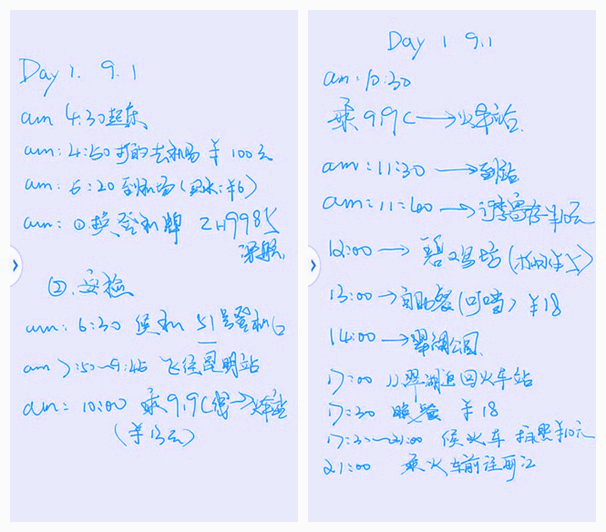 Day 1. 9.1
am 4:30起床
am: 4:50 打的去机场 ¥ 100元
am: 6:20 到机场(买水:¥6)
am: ①换登机牌 ZH9985
深航
②.安检
am: 6:30 候机 51号登机口
am 7:50~9:45 飞往昆明站
am: 10:00 乘919C
(¥13元)
Day 1 9.1
am: 10:30
乘919C→火车站
am: 11:30 →到站
am: 11:40 →行李寄存¥10元
12:00 → 碧鸡坊(¥5)
13:00 →自助餐(叮当) ¥18
14:00 →翠湖公园
17:00 从翠湖返回火车站
17:30 晚餐 ¥18
17:30~21:00 候火车 ¥10元
21:00 乘火车前往丽江